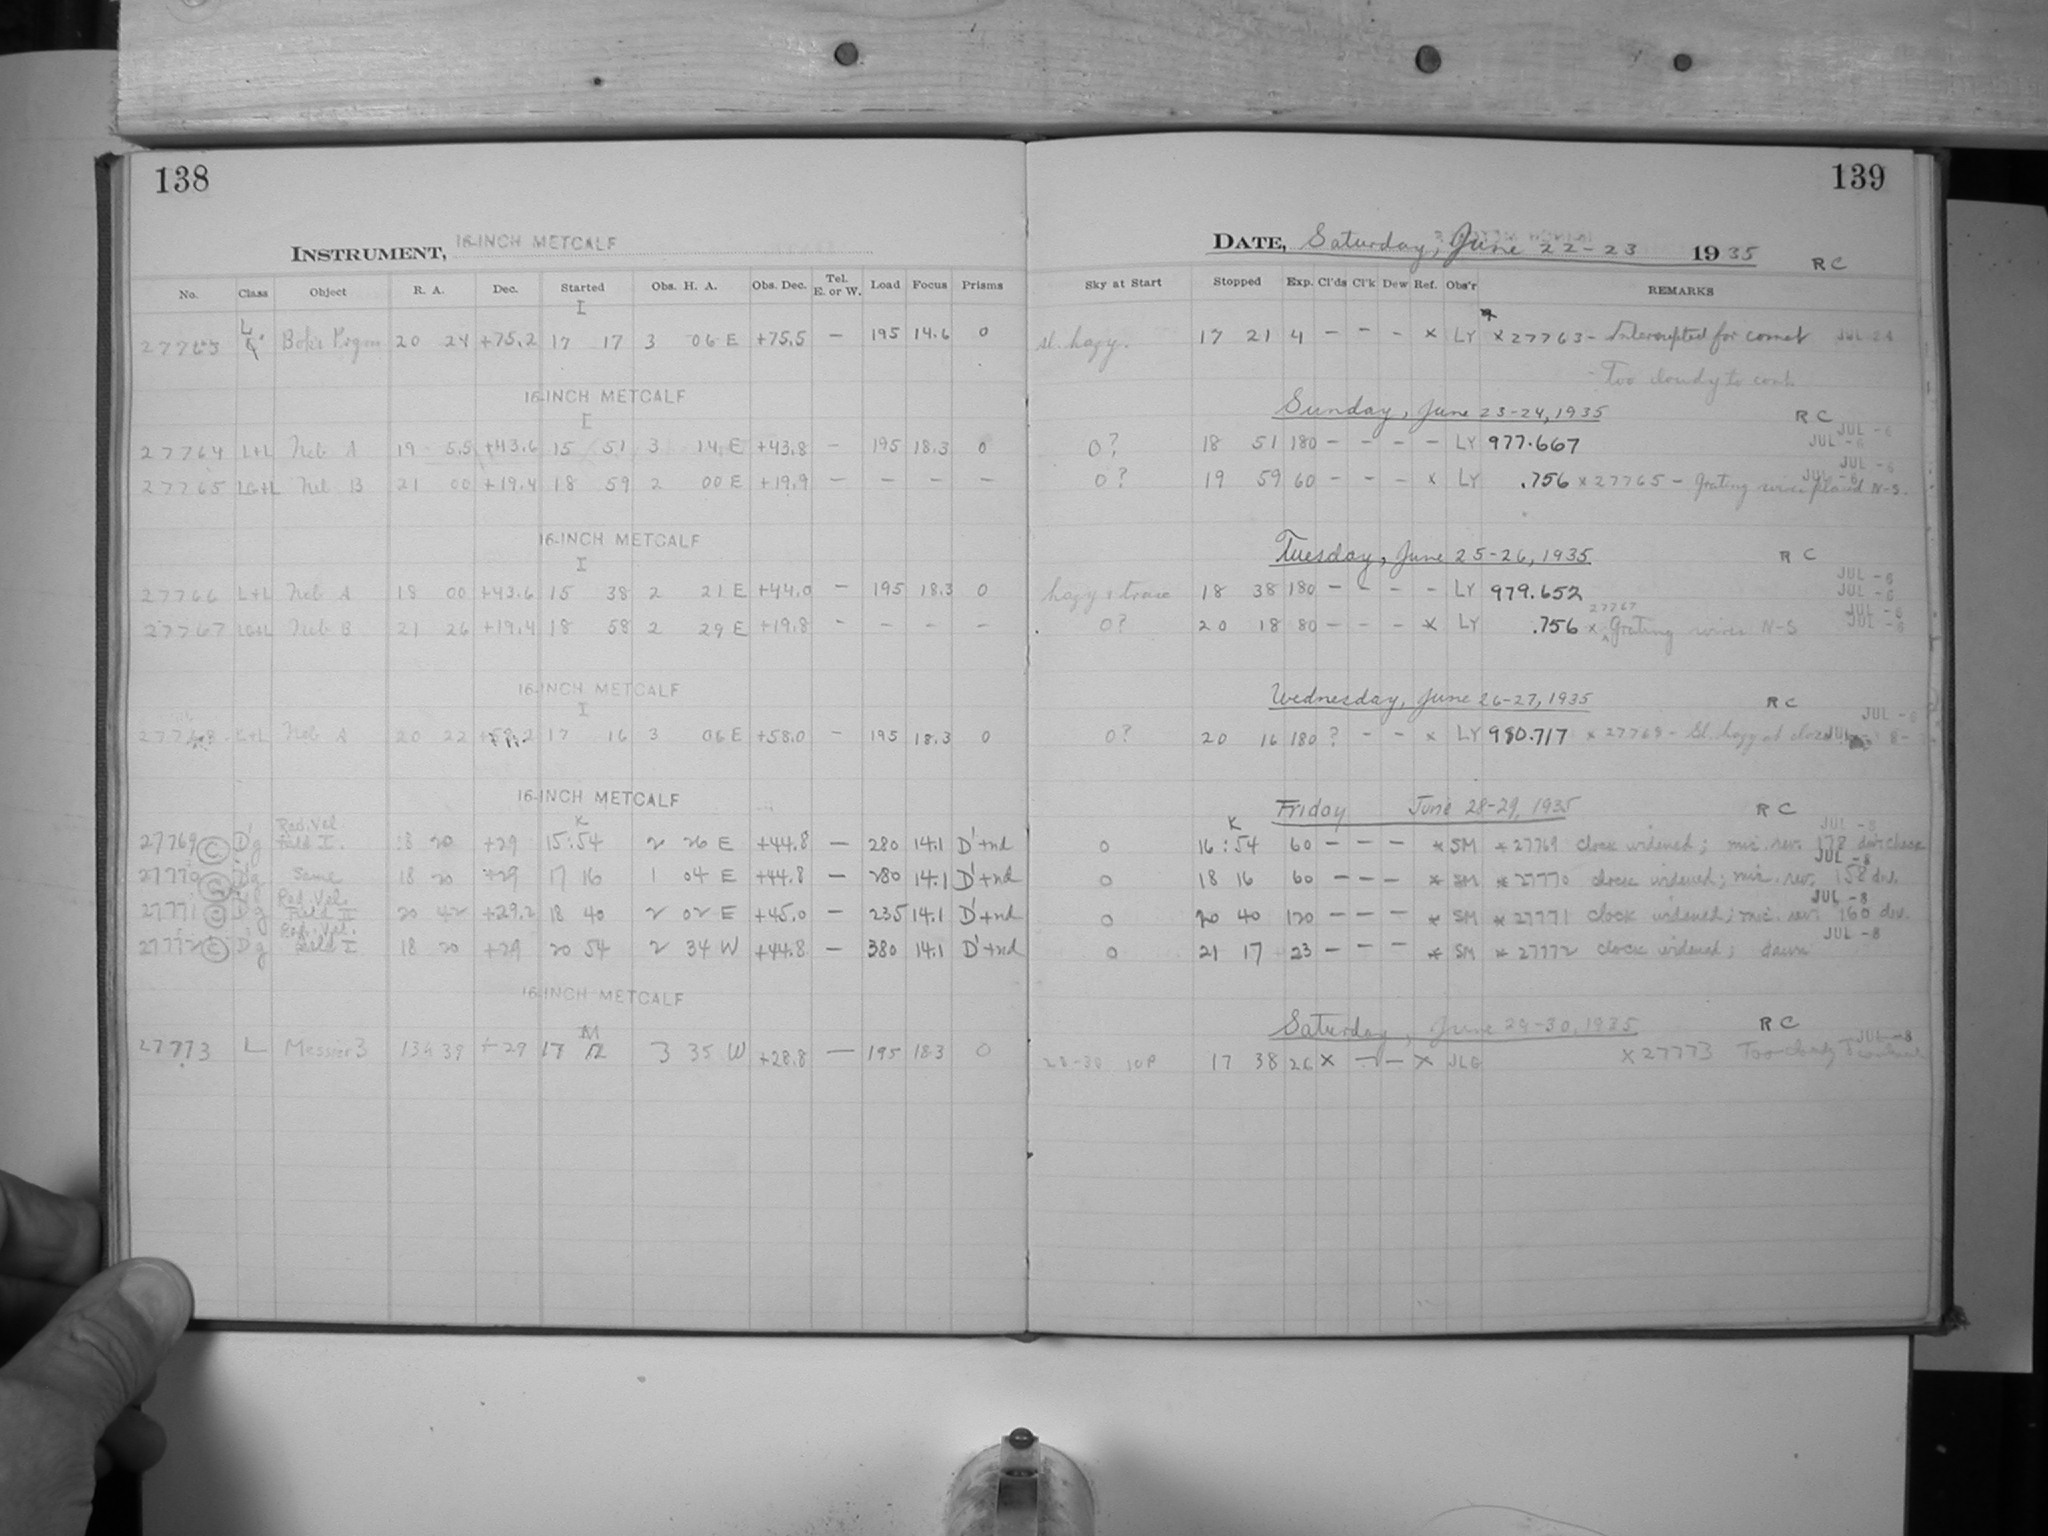 138
INSTRUMENT, 16-INCH METCALF
No. Class Object R. A. Dec. Started Obs. H. A. Obs. Dec. Tel. E. or W. Load Focus Prisms
I
27763 L Boks Region 20 24 +75.2 17 17 3 06 E +75.5 — 195 14.6 0
16-INCH METCALF
I
27764 L+L Neb A 19 5.5 +43.6 15 51 3 14 E +43.8 — 195 18.3 0
27765 LG+L Neb B 21 00 +19.4 18 59 2 00 E +19.9 — — — —
16-INCH METCALF
I
27766 L+L Neb A 18 00 +43.6 15 38 2 21 E +44.0 — 195 18.3 0
27767 LG+L Neb B 21 26 +19.4 18 58 2 29 E +19.8 — — — —
16-INCH METCALF
I
27768 L+L Neb A 20 22 17 16 3 06 E +58.0 — 195 18.3 0
16-INCH METCALF
K
27769 C D'g Rad. Vel. Field I. 18 20 +29 15:54 2 26 E +44.8 — 280 14.1 D'+nd
27770 C D'g Same 18 20 +29 17 16 1 04 E +44.8 — 280 14.1 D'+nd
27771 C D'g Rad. Vel. Field II 20 42 +29.2 18 40 2 02 E +45.0 — 235 14.1 D'+nd
27772 C D'g Rad. Vel. Field I 18 20 +29 20 54 2 34 W +44.8 — 380 14.1 D'+nd
16-INCH METCALF
M
27773 L Messier 3 13h 39 +29 17 12 3 35 W +28.8 — 195 18.3 0
139
DATE, Saturday, June 22-23 1935 RC
Sky at Start Stopped Exp. Cl'ds Cl'k Dew Ref. Obs'r REMARKS
sl. hazy. 17 21 4 — — — x LY x 27763 - Interrupted for comet JUL 24
- Too cloudy to cont.
Sunday, June 23-24, 1935 RC
JUL -6
0? 18 51 180 — — — — LY 977.667 JUL -6
JUL -6
0? 19 59 60 — — — x LY .756 x 27765 - Grating wires placed N-S. JUL -6
Tuesday, June 25-26, 1935 RC
JUL -6
hazy + trace 18 38 180 — — — — LY 979.652 JUL -6
27767 JUL -6
0? 20 18 80 — — — x LY .756 x Grating wires N-S JUL -6
Wednesday, June 26-27, 1935 RC
JUL -6
0? 20 16 180 ? — — x LY 980.717 x 27768 - Sl. hazy at close
Friday June 28-29, 1935 RC
K JUL -8
0 16:54 60 — — — * SM * 27769 clock widened; mic. rev. 178 div.
JUL -8
0 18 16 60 — — — * SM * 27770 clock widened; mic. rev. 158 div.
JUL -8
0 20 40 120 — — — * SM * 27771 clock widened; mic. rev. 160 div.
JUL -8
0 21 17 23 — — — * SM * 27772 clock widened; dawn
Saturday, June 29-30, 1935 RC
JUL -8
17 38 26 x — — x JLG x 27773 Too cloudy To continue